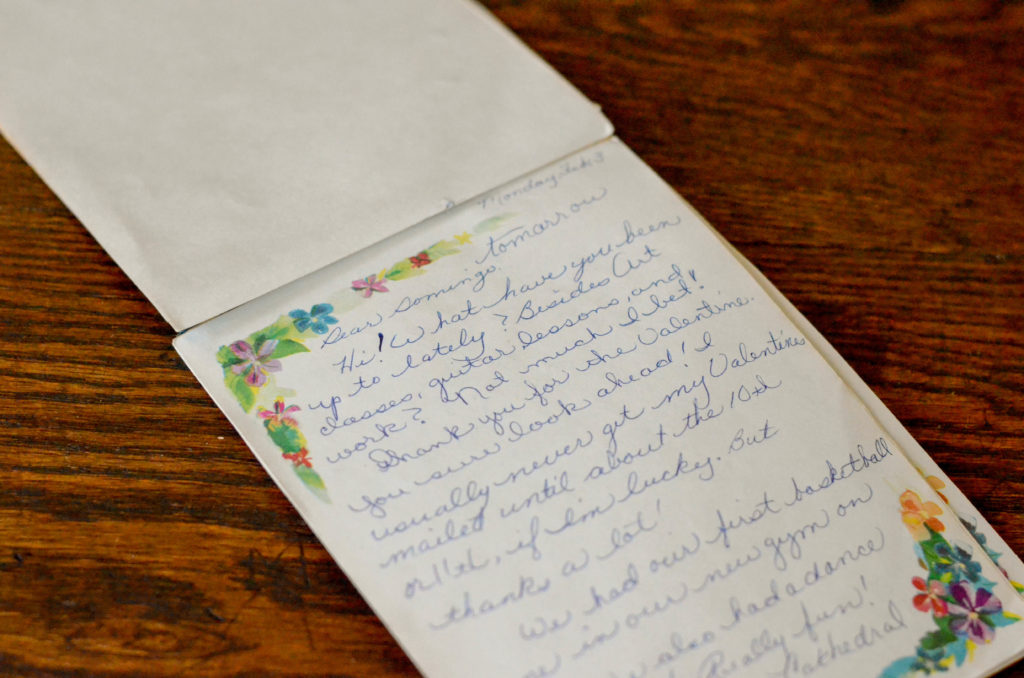 Monday, Feb 3
tomorrow
Dear Somingo,
Hi! What have you been
up to lately? Besides Art
classes, guitar lessons, and
work? Not much I bet!
Thank you for the Valentine.
you sure look ahead! I
usually never get my Valentines
mailed until about the 10th
or 11th, if I'm lucky. But
thanks a lot!
We had our first basketball
in our new gym on
also had a dance
Really fun!
Cathedral